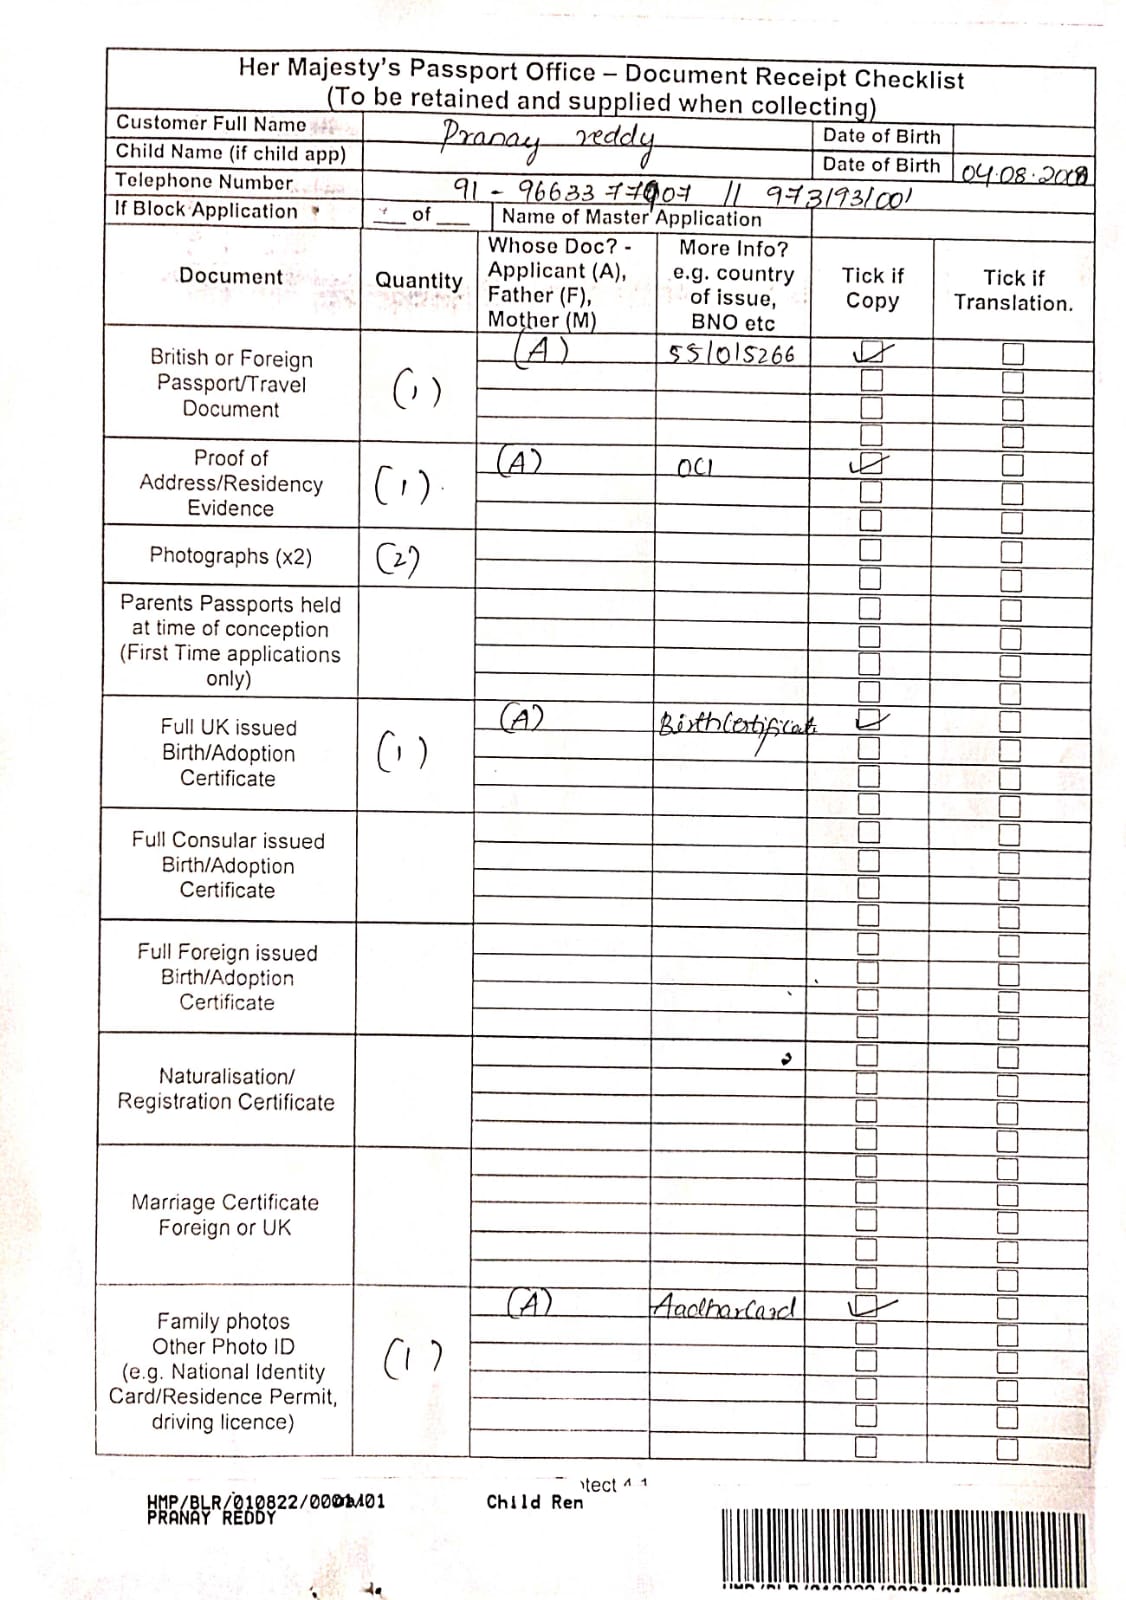 Her Majesty's Passport Office – Document Receipt Checklist
(To be retained and supplied when collecting)
Customer Full Name
Pranay reddy
Date of Birth
Child Name (if child app)
Date of Birth
04.08.2008
Telephone Number
91 - 96633 77907 // 973193100
If Block Application
of
Name of Master Application
Document
Quantity
Whose Doc? -
Applicant (A),
Father (F),
Mother (M)
More Info?
e.g. country
of issue,
BNO etc
Tick if
Copy
Tick if
Translation.
British or Foreign
Passport/Travel
Document
(1)
(A)
551015266
Proof of
Address/Residency
Evidence
(1)
(A)
OCI
Photographs (x2)
(2)
Parents Passports held
at time of conception
(First Time applications
only)
Full UK issued
Birth/Adoption
Certificate
(1)
(A)
Birth Certificate
Full Consular issued
Birth/Adoption
Certificate
Full Foreign issued
Birth/Adoption
Certificate
Naturalisation/
Registration Certificate
Marriage Certificate
Foreign or UK
Family photos
Other Photo ID
(e.g. National Identity
Card/Residence Permit,
driving licence)
(1)
(A)
Aadhar Card
HMP/BLR/010822/0001/01
PRANAY REDDY
Child Ren